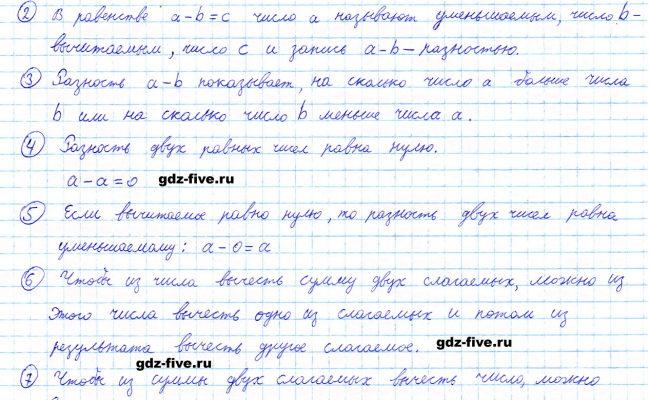 ② В равенстве a-b=c число a называют уменьшаемым, число b-
вычитаемым, число c и запись a-b-разностью.
③ Разность a-b показывает, на сколько число a больше числа
b или на сколько число b меньше числа a.
④ Разность двух равных чисел равна нулю.
a-a=0 gdz-five.ru
⑤ Если вычитаемое равно нулю, то разность двух чисел равна
уменьшаемому: a-0=a
⑥ Чтобы из числа вычесть сумму двух слагаемых, можно из
этого числа вычесть одно из слагаемых и потом из
результата вычесть другое слагаемое. gdz-five.ru
gdz-five.ru
⑦ Чтобы из суммы двух слагаемых вычесть число, можно